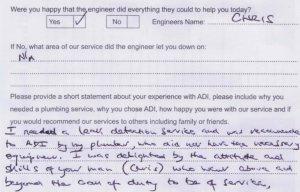 Were you happy that the engineer did everything they could to help you today?
Yes ✓ No Engineers Name: CHRIS
If No, what area of our service did the engineer let you down on:
N/A
Please provide a short statement about your experience with ADI, please include why you
needed a plumbing service, why you chose ADI, how happy you were with our service and if
you would recommend our services to others including family or friends.
I needed a leak detection service and was recommended
to ADI by my plumber, who did not have the necessary
equipment. I was delighted by the attitude and
skills of your man (Chris) who went above and
beyond the call of duty to be of service,